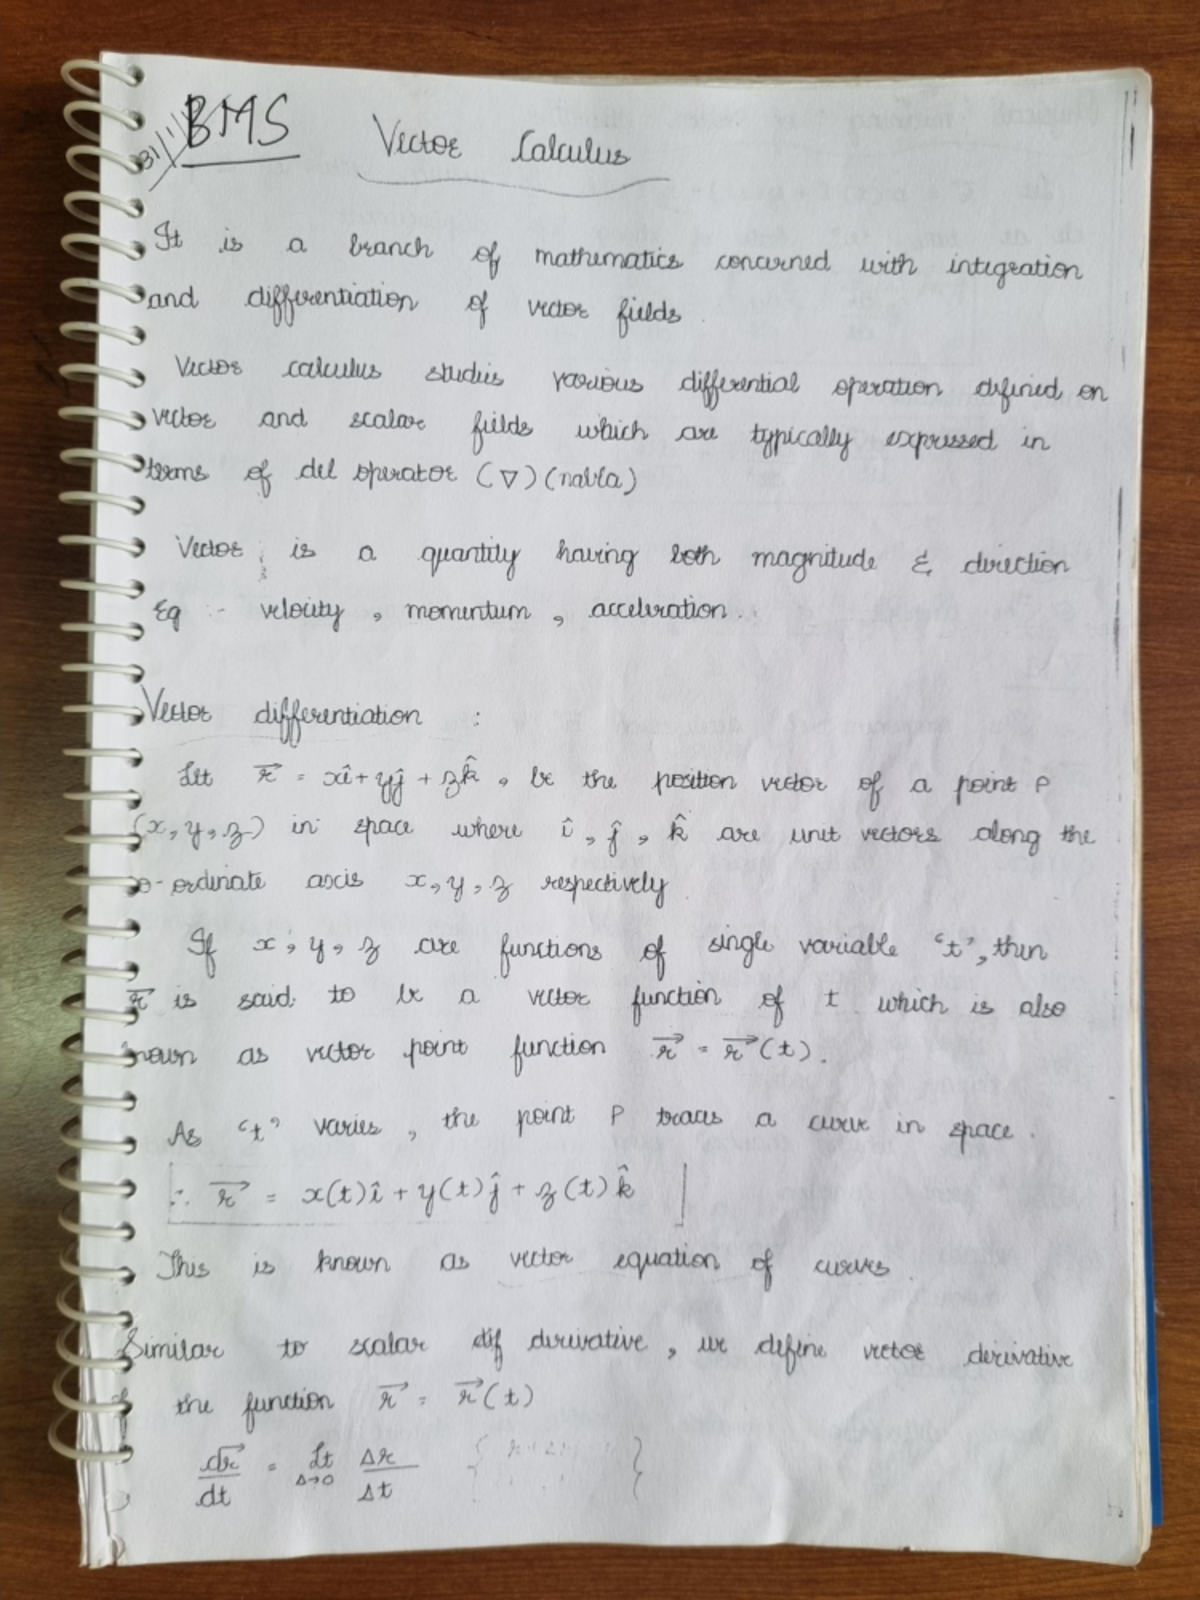 BMS
31/1/
Vector Calculus
It is a branch of mathematics concerned with integration
and differentiation of vector fields.
Vector calculus studies various differential operation defined on
vector and scalar fields which are typically expressed in
terms of del operator (∇) (nabla)
Vector is a quantity having both magnitude & direction
Eg :- velocity, momentum, acceleration.
Vector differentiation :
Let r⃗ = xî + yĵ + zk̂, be the position vector of a point P
(x, y, z) in space where î, ĵ, k̂ are unit vectors along the
o-ordinate axis x, y, z respectively
If x, y, z are functions of single variable 't', then
r⃗ is said to be a vector function of t which is also
nown as vector point function r⃗ = r⃗(t).
As "t" varies, the point P traces a curve in space.
∴ r⃗ = x(t)î + y(t)ĵ + z(t)k̂
This is known as vector equation of curves.
Similar to scalar dif derivative, we define vector derivative
of the function r⃗ = r⃗(t)
dr⃗/dt = Lt Δ→0 Δr/Δt